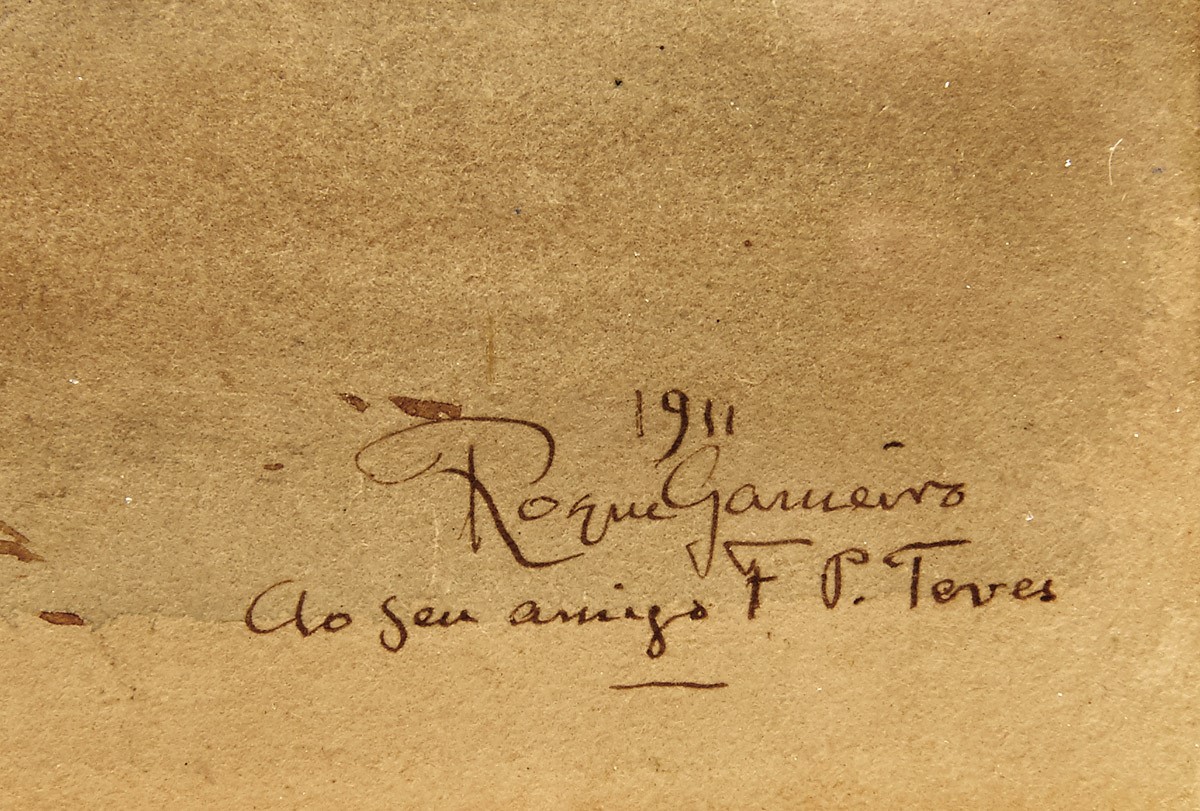 1911
Roque Gameiro
Ao seu amigo F P. Teves